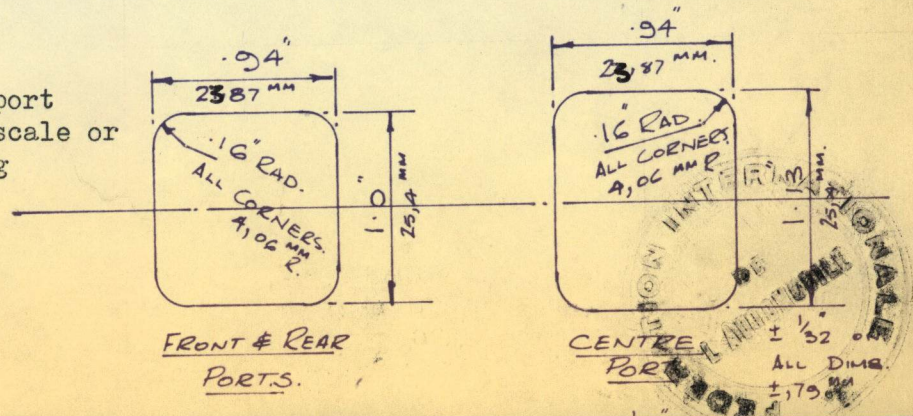 port
scale or
g
.94"
23,87 MM
.16" RAD.
ALL CORNERS.
4,06 MM R.
1.0"
25,4 MM
FRONT & REAR
PORTS.
.94"
23,87 MM.
.16" RAD.
ALL CORNERS
4,06 MM R.
1.13"
25,4 MM.
CENTRE
PORT
± 1/32" ON
ALL DIMS.
±,79 MM
INTERNATIONALE
DE
L'AUTOMOBILE